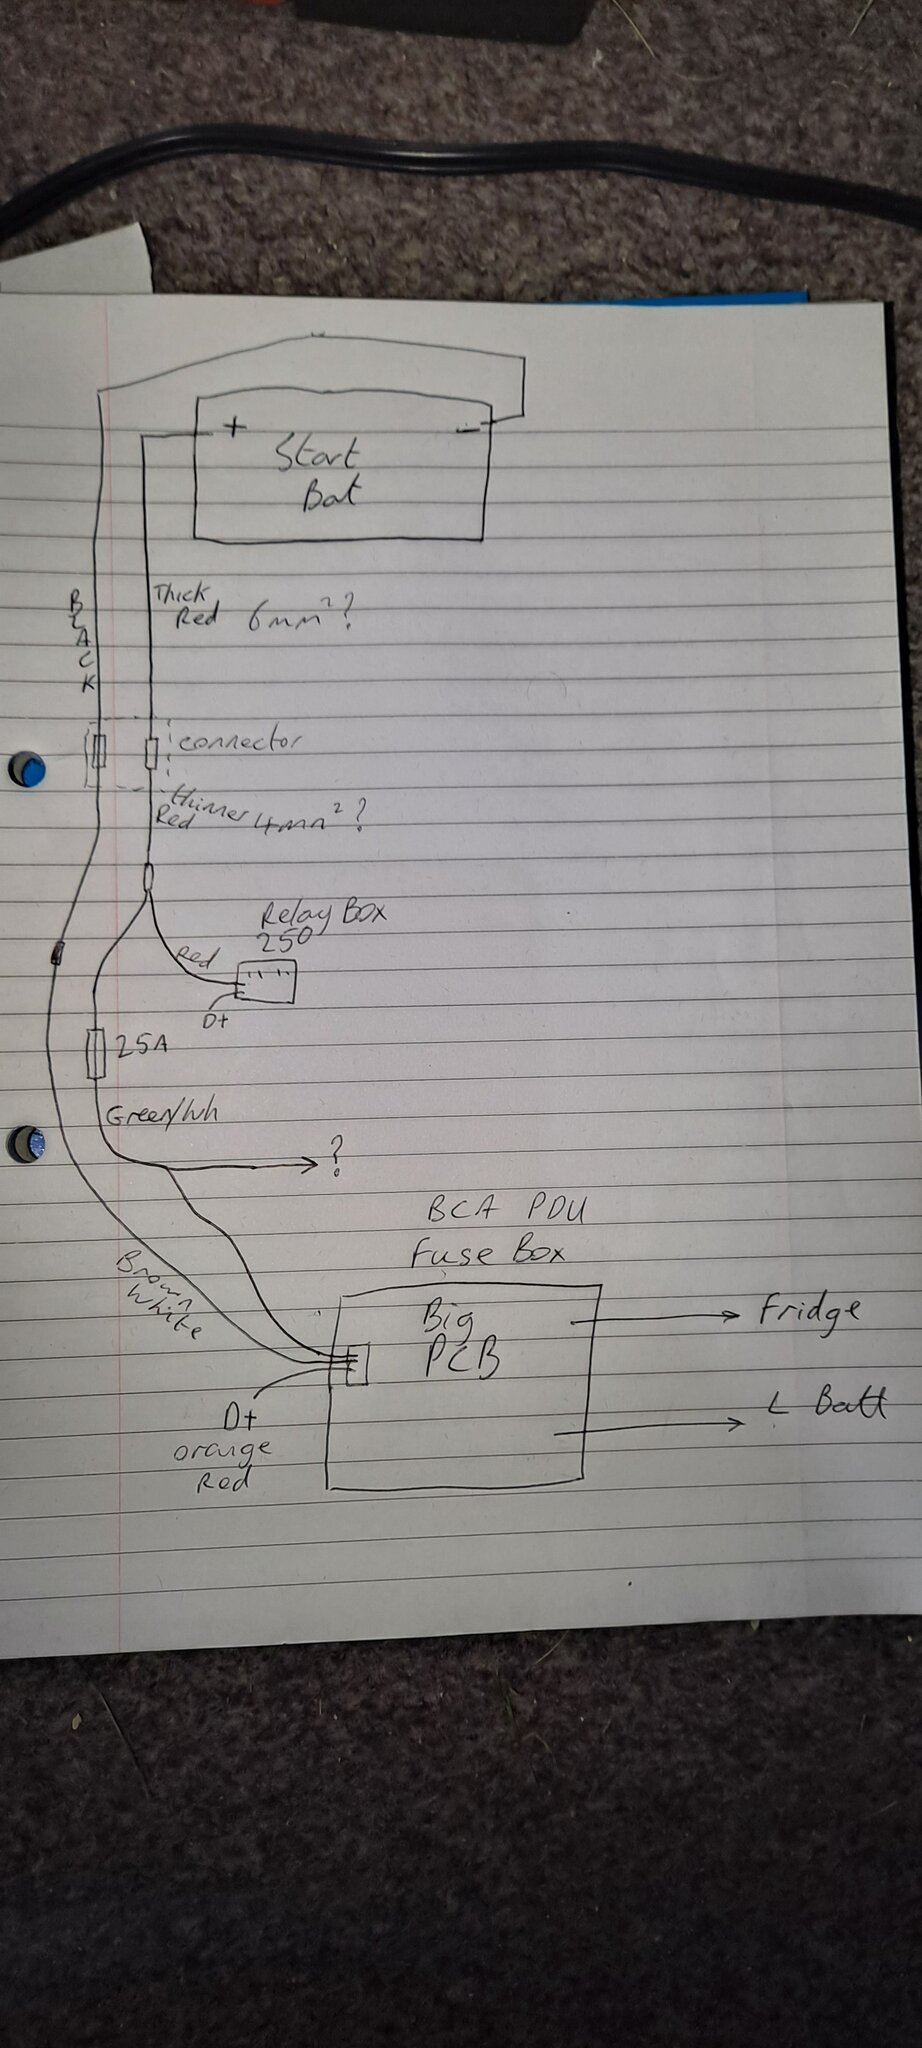 + -
Start
Bat
BLACK
Thick
Red 6mm²?
connector
thinner
Red 4mm²?
Relay Box
250
Red
D+
25A
Green/Wh
?
BCA PDU
Fuse Box
Brown
White
Big
PCB
Fridge
L Batt
D+
orange
Red